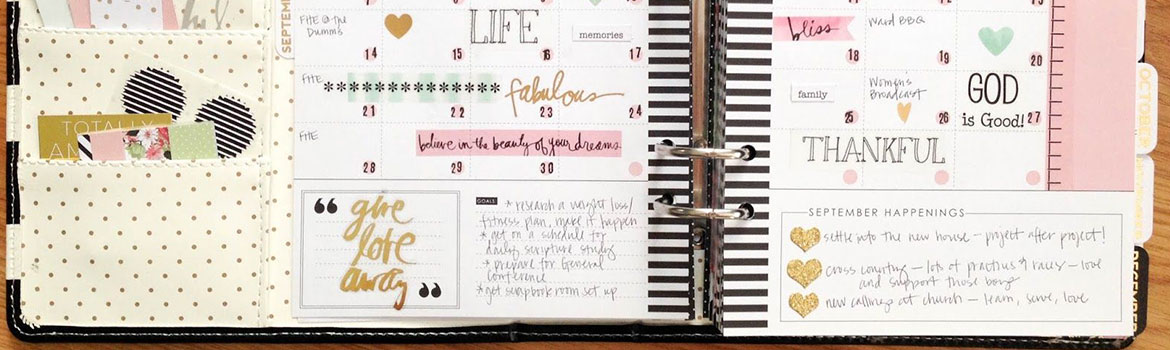 SEPTEMBE
FHE @ the
Dumms
LIFE
memories
14
15
16
17
FHE
*************
fabulous
21
22
23
24
FHE
believe in the beauty of your dreams.
28
29
30
TOTALLY
AN
"
give
love
away
"
GOALS
* research a weight loss/
fitness plan, make it happen
* get on a schedule for
daily scripture study
* prepare for General
conference
* get scrapbook room set up
bliss
Ward BBQ
18
19
20
family
Women's
Broadcast
GOD
is Good!
25
26
27
THANKFUL
SEPTEMBER HAPPENINGS
settle into the new house - project after project!
cross country - lots of practices & races - love
and support those boys
new callings at church - learn, serve, love
OCTOBER
DECEMBER